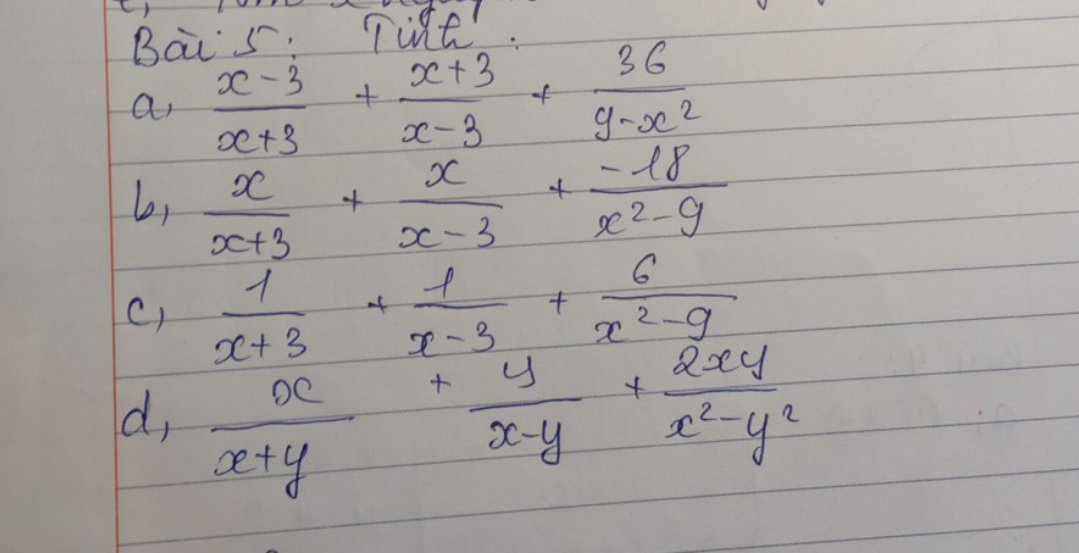 Bài 5: Tính:
a, \frac{x-3}{x+3} + \frac{x+3}{x-3} + \frac{36}{9-x^2}
b, \frac{x}{x+3} + \frac{x}{x-3} + \frac{-18}{x^2-9}
c, \frac{1}{x+3} + \frac{1}{x-3} + \frac{6}{x^2-9}
d, \frac{x}{x+y} + \frac{y}{x-y} + \frac{2xy}{x^2-y^2}